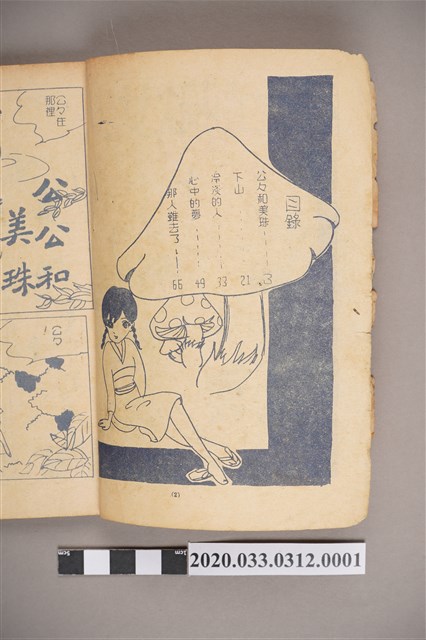 目錄
公々和美珠 3
下山 21
冷淡的人 33
心中的夢 49
那人離去了 66
(2)
公々在
那裡
公公和
美珠
公々
2020.033.0312.0001
5cm
1cm